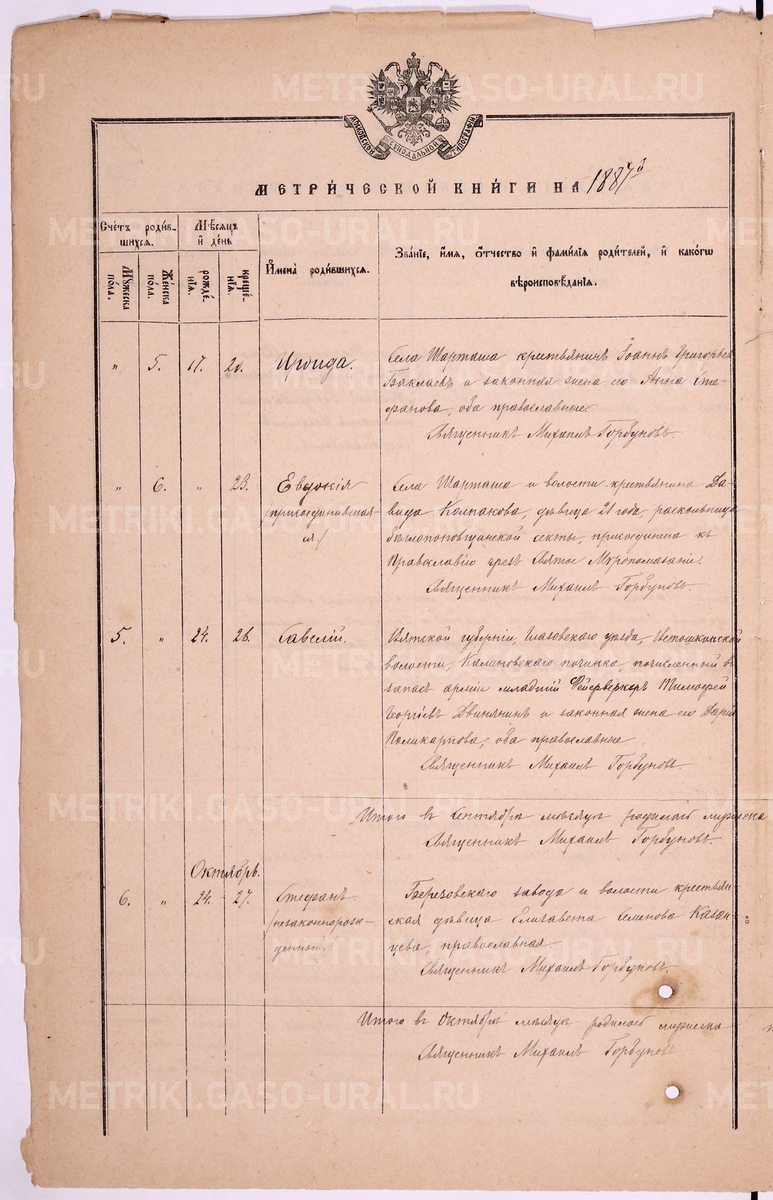 МОСКОВСКОЙ СѴНОДАЛЬНОЙ ТИПОГРАФІИ
МЕТРИ́ЧЕСКОЙ КНИ́ГИ НА 1887й
Сче́тъ роди́в-
шихся.
Мѣсяцъ
и҆ де́нь
Мꙋ́жеска
по́ла.
Же́нска
по́ла.
рожде́-
нія.
креще́-
нія.
И҆мена̀ роди́вшихся.
Зва́ніе, и҆́мя, о҆́тчество и҆ фами́лія роди́телей, и҆ како́гѡ
вѣроисповѣ́данія.
„ 5. 17. 20. Ироида. Села Шарташа крестьянинъ Іоаннъ Григорьевъ
Баклаевъ и законная жена его Анна Сте-
фанова, оба православные
Священникъ Михаилъ Горбуновъ.
„ 6. „ 23. Евдокія
(присоединившая-
ся)
Села Шарташа и волости крестьянина Да-
вида Колпакова, дѣвица 21 года, раскольница
бѣглопоповщинской секты, присоединена къ
Православію чрезъ Святое Мѵропомазаніе.
Священникъ Михаилъ Горбуновъ.
5. „ 24. 26. Савелій. Вятской губерніи, Глазовскаго уѣзда,
волости, Калиновскаго починка, зачисленный въ
запасъ арміи младшій Фейерверкеръ Тимофей
Георгіевъ Двинянинъ и законная жена его Дарія
Поликарпова, оба православные
Священникъ Михаилъ Горбуновъ.
Итого въ Сентябрѣ мѣсяцѣ родилось мужеска
Священникъ Михаилъ Горбуновъ.
Октябрь.
6. „ 24. 27. Стефанъ
(незаконнорож-
денный.)
Березовскаго завода и волости крестьян-
ская дѣвица Елизавета Семенова Казан-
цева, православная.
Священникъ Михаилъ Горбуновъ.
Итого въ Октябрѣ мѣсяцѣ родилось мужеска
Священникъ Михаилъ Горбуновъ
METRIKI.GASO-URAL.RU